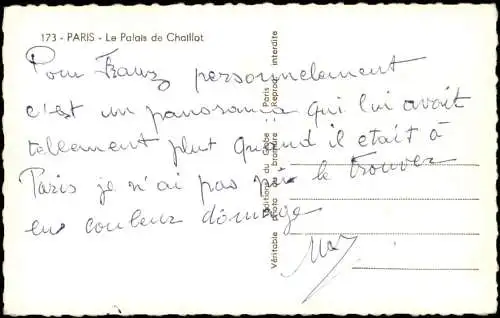 173 - PARIS - Le Palais de Chaillot
Pour Franz personnelement
c'est un panorama qui lui avait
tellement plut quand il etait à
Paris je n'ai pas pû le trouver
en couleur dômage
Editions du Globe Paris
Véritable photo au bromure Reprod. interdite